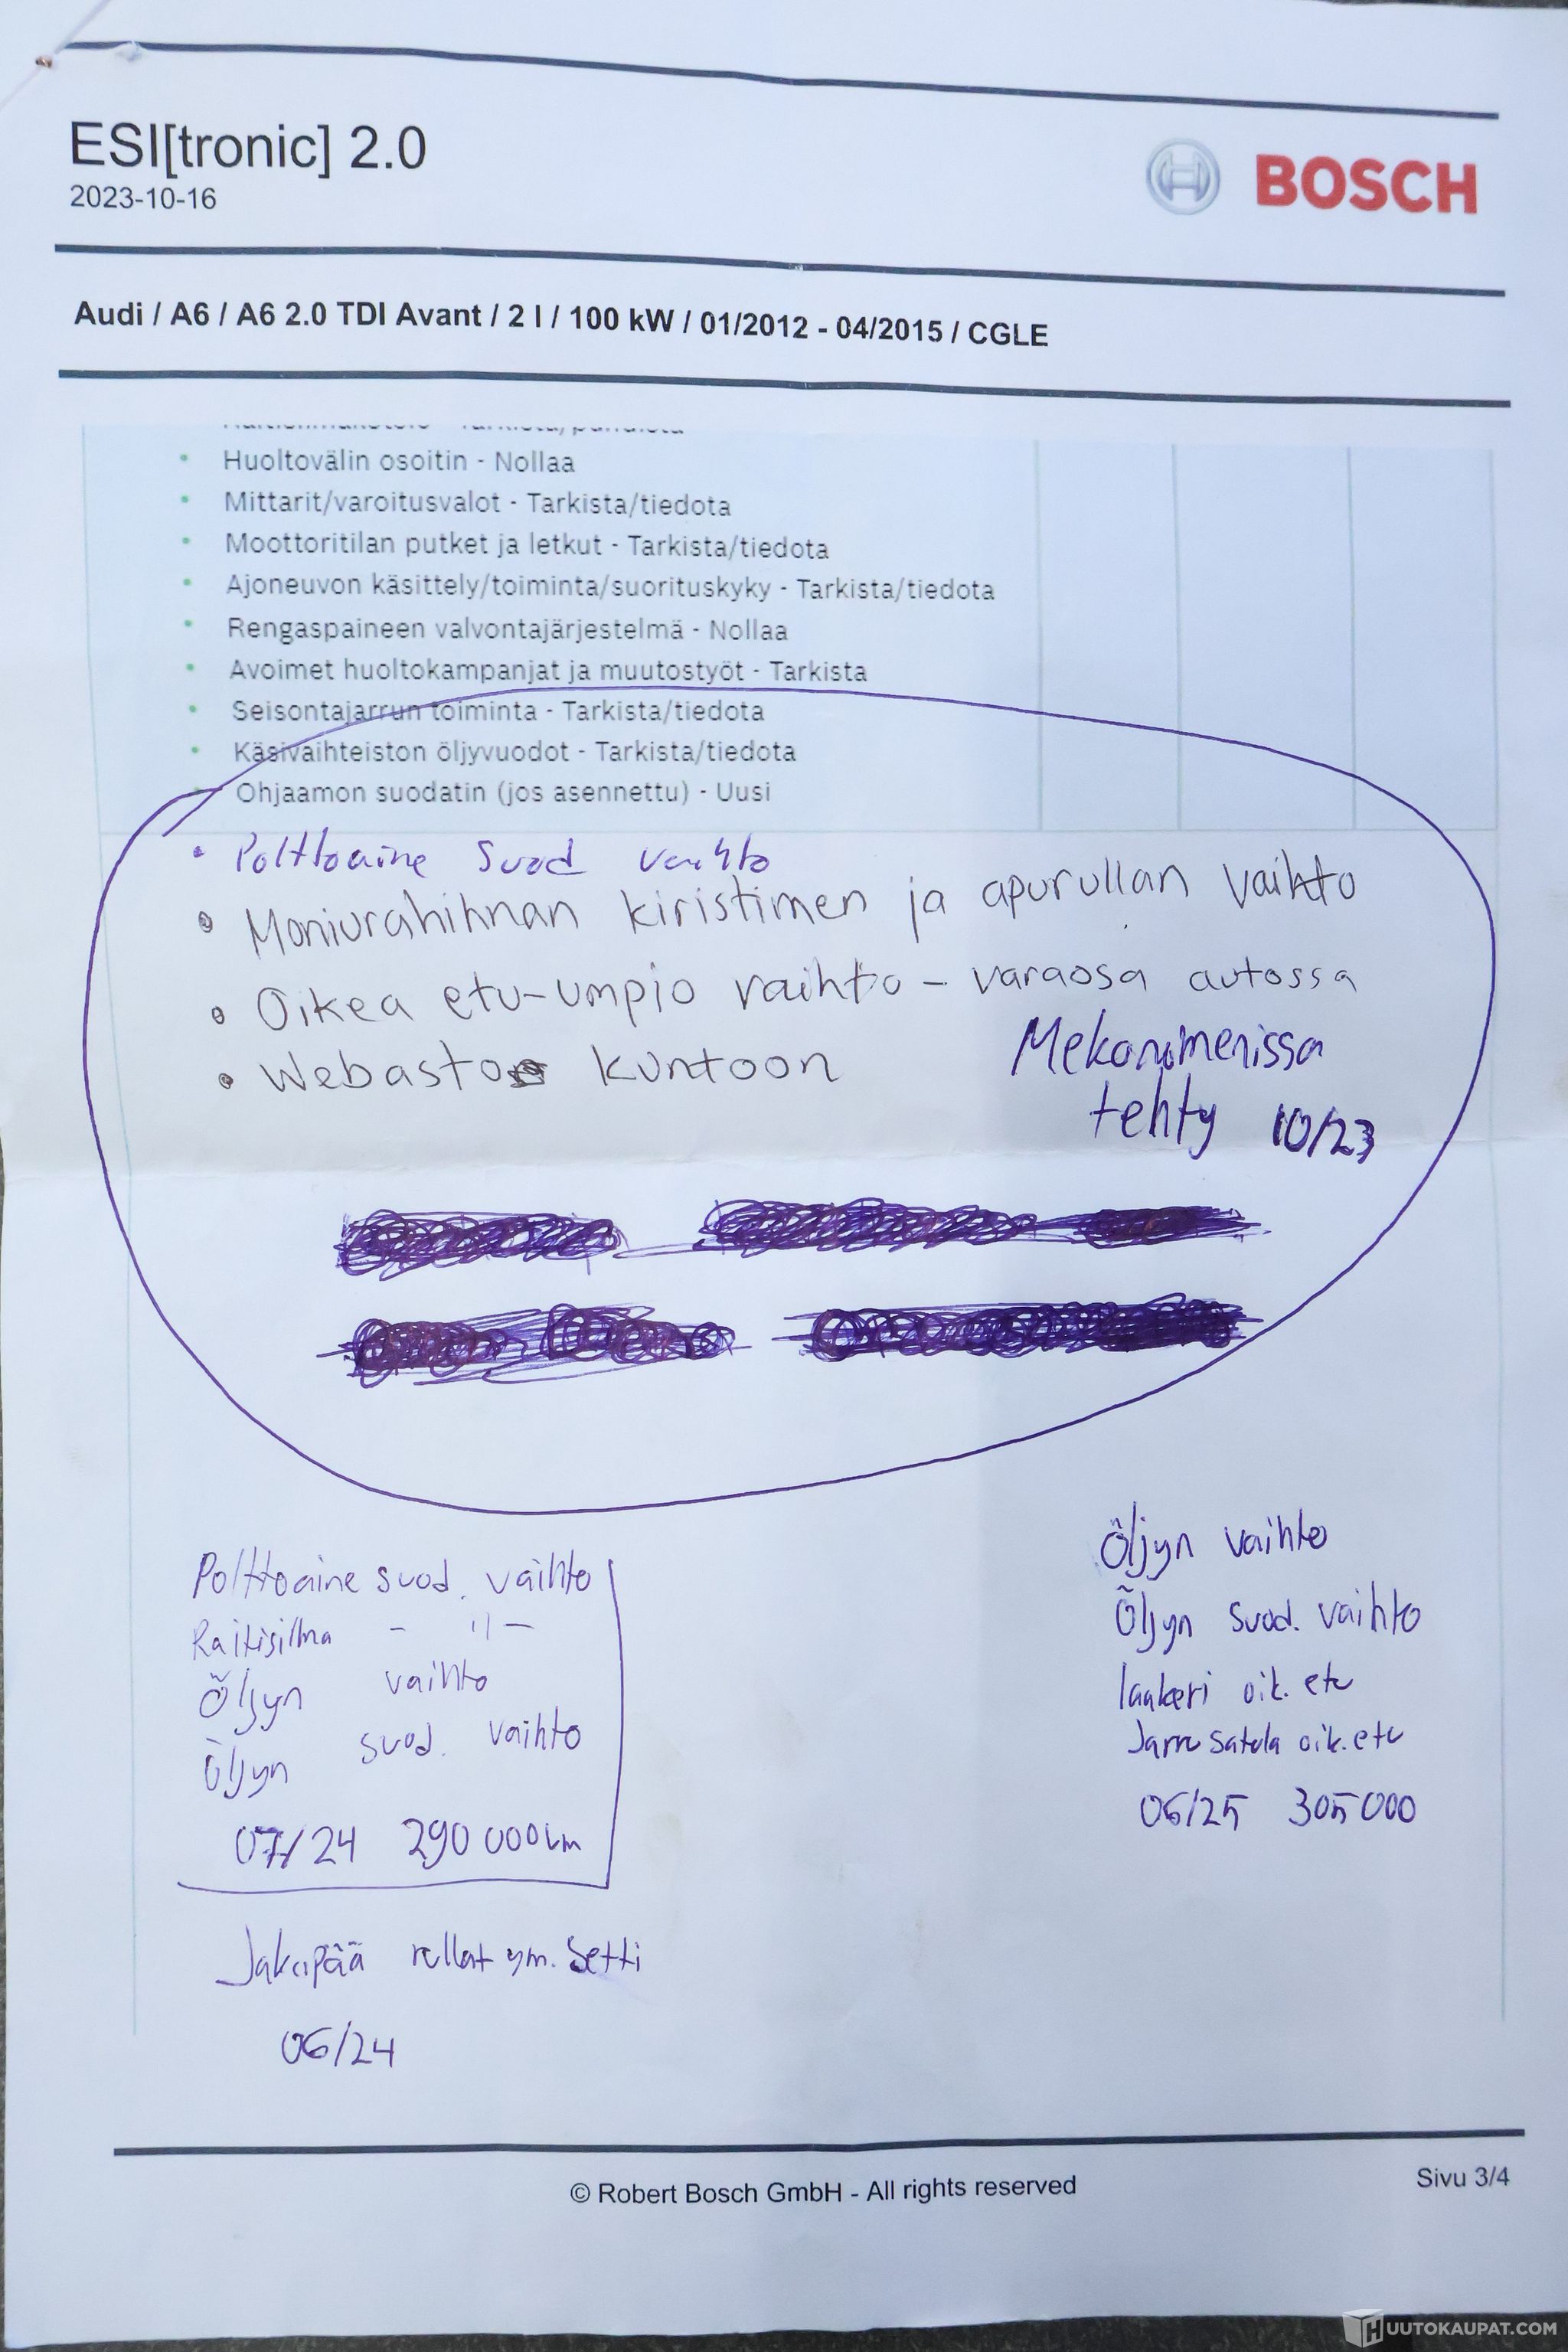 ESI[tronic] 2.0
2023-10-16
BOSCH
Audi / A6 / A6 2.0 TDI Avant / 2 l / 100 kW / 01/2012 - 04/2015 / CGLE
• Huoltovälin osoitin - Nollaa
• Mittarit/varoitusvalot - Tarkista/tiedota
• Moottoritilan putket ja letkut - Tarkista/tiedota
• Ajoneuvon käsittely/toiminta/suorituskyky - Tarkista/tiedota
• Rengaspaineen valvontajärjestelmä - Nollaa
• Avoimet huoltokampanjat ja muutostyöt - Tarkista
• Seisontajarrun toiminta - Tarkista/tiedota
• Käsivaihteiston öljyvuodot - Tarkista/tiedota
• Ohjaamon suodatin (jos asennettu) - Uusi
• Polttoaine suod vaihto
• Moniurahihnan kiristimen ja apurullan vaihto
• Oikea etu-umpio vaihto - varaosa autossa
• Webasto kuntoon
Mekonomenissa
tehty 10/23
Polttoaine suod. vaihto
Raitisilma - 11 -
Öljyn vaihto
Öljyn suod. vaihto
07/24 290 000km
Jakopää rullat ym. Setti
06/24
Öljyn vaihto
Öljyn suod. vaihto
laakeri oik. etu
Jarru satula oik. etu
06/25 305 000
© Robert Bosch GmbH - All rights reserved
Sivu 3/4
HUUTOKAUPAT.COM